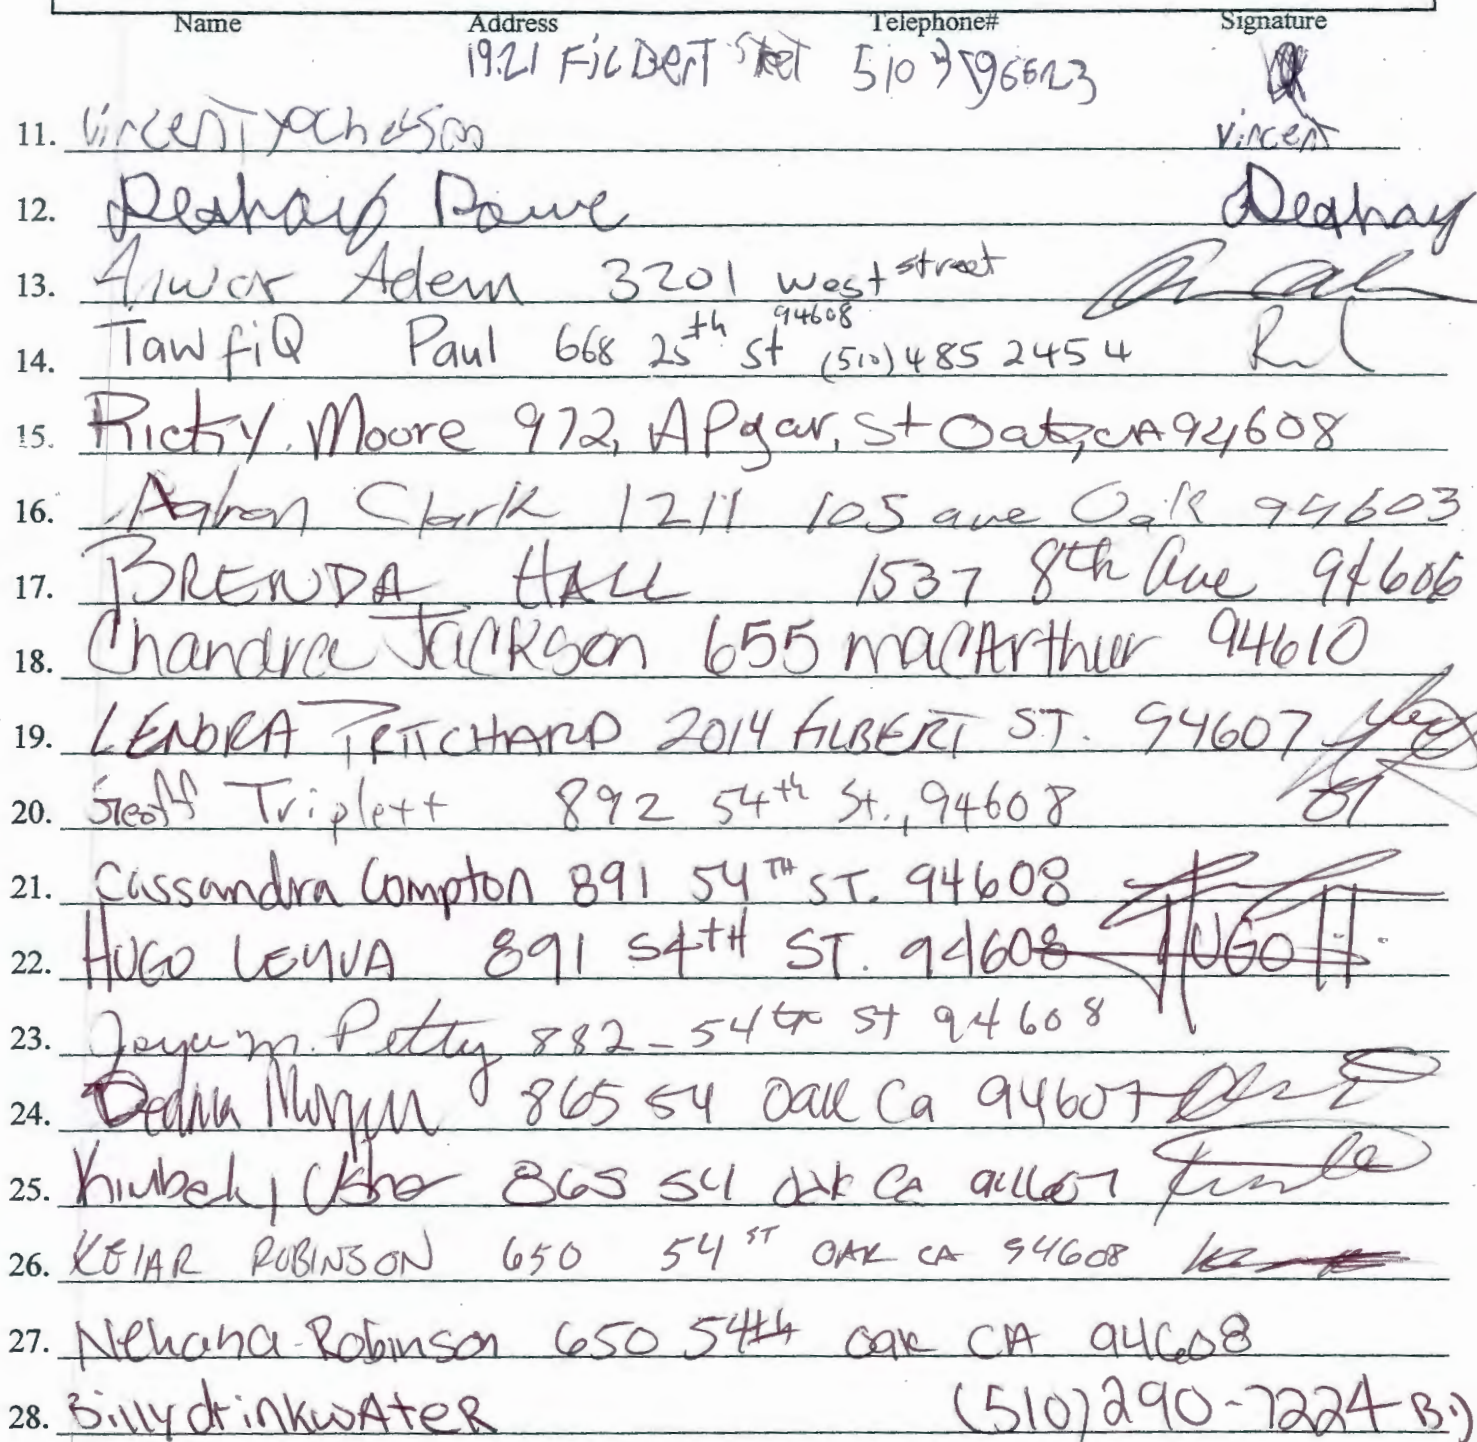 Name Address Telephone# Signature
1921 Filbert Street 510
11. Vincent Vincent
12. Deshay Deshay
13. Adem 3201 west street
94608
14. TawfiQ Paul 668 25th st (510) 485 2454
15. Ricky. Moore 972, APgar, St Oak, CA 94608
16. Clark 1211 105 ave Oak 94603
17. BRENDA HALL 1537 8th Ave 94606
18. Chandra Jackson 655 macArthur 94610
19. LENORA PRITCHARD 2014 FILBERT ST. 94607
20. Geoff Triplett 892 54th St., 94608
21. Cassandra Compton 891 54TH ST. 94608
22. HUGO LEYVA 891 54TH ST. 94608 HUGO
23. Petty 882 - 54th St 94608
24. 865 54 Oak Ca 94607
25. 865 54 Oak Ca 94607
26. KEIAR ROBINSON 650 54ST OAK CA 94608
27. Nehana Robinson 650 54th Oak CA 94608
28. Billy drinkwAteR (510) 290-7224 B.)